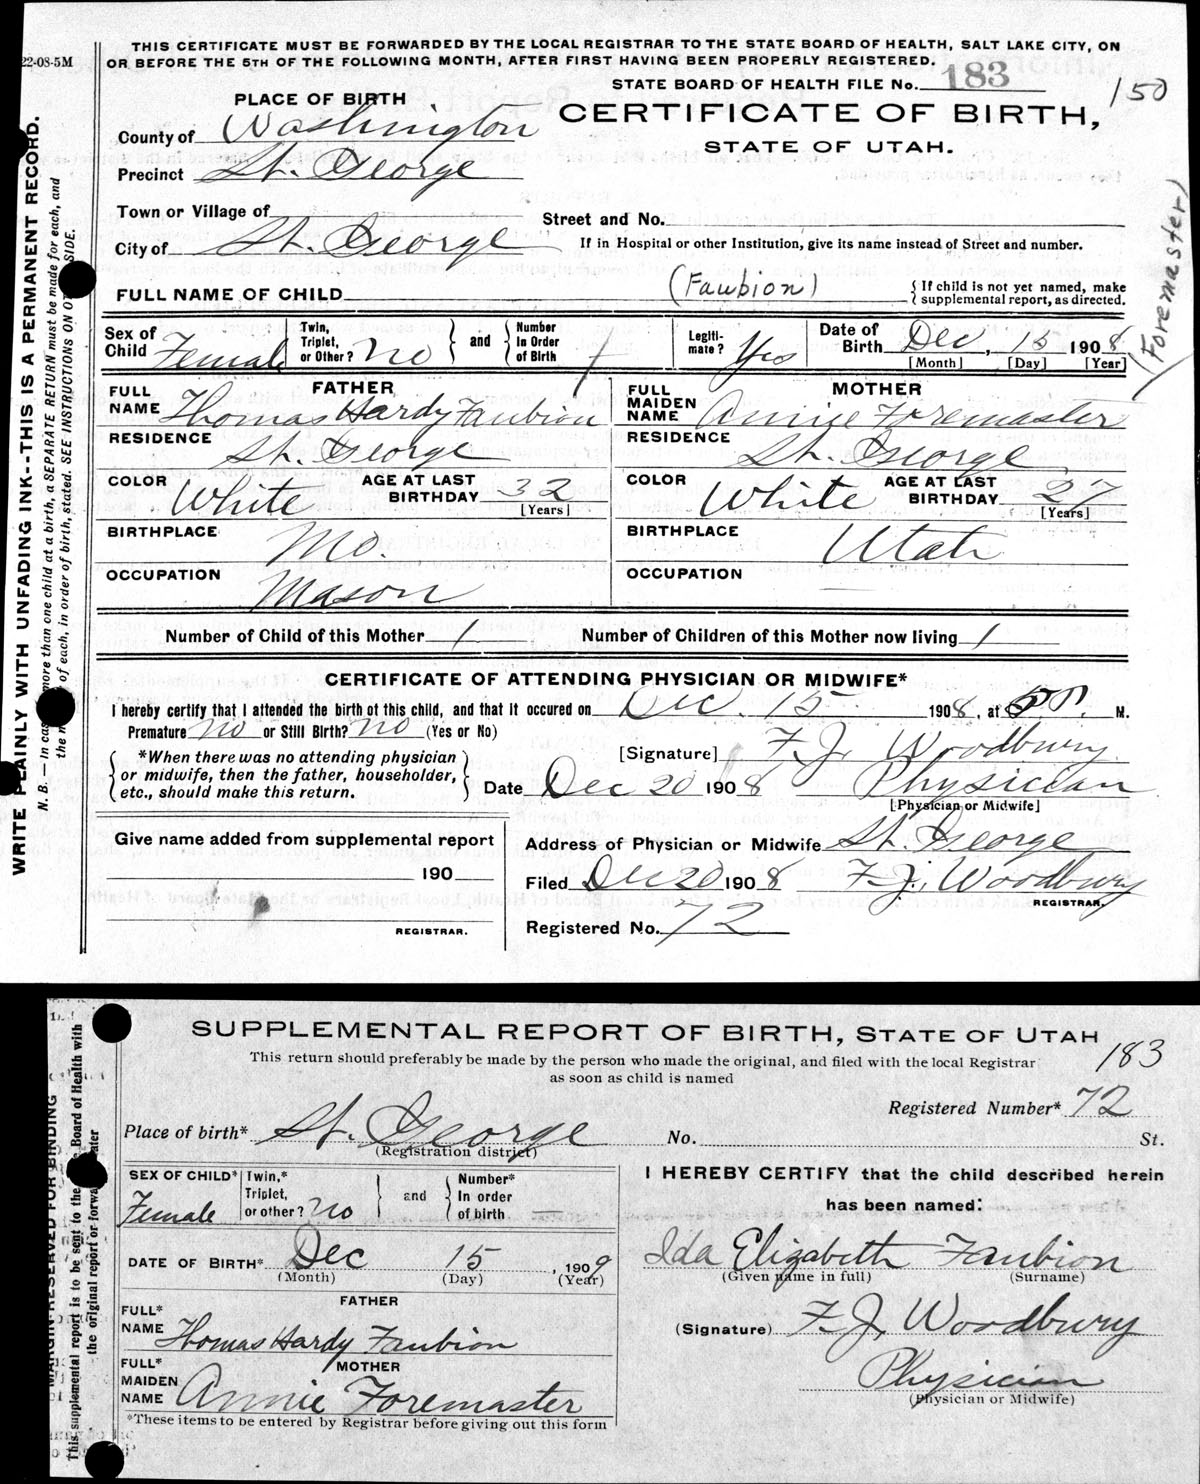 THIS CERTIFICATE MUST BE FORWARDED BY THE LOCAL REGISTRAR TO THE STATE BOARD OF HEALTH, SALT LAKE CITY, ON
OR BEFORE THE 5TH OF THE FOLLOWING MONTH, AFTER FIRST HAVING BEEN PROPERLY REGISTERED.
22-08-5M
STATE BOARD OF HEALTH FILE No. 183
150
PLACE OF BIRTH
CERTIFICATE OF BIRTH,
STATE OF UTAH.
County of Washington
Precinct St. George
Town or Village of
Street and No.
City of St. George
If in Hospital or other Institution, give its name instead of Street and number.
FULL NAME OF CHILD (Faubion)
{ If child is not yet named, make
supplemental report, as directed.
(Foremaster)
WRITE PLAINLY WITH UNFADING INK--THIS IS A PERMANENT RECORD.
N. B. — In case more than one child at a birth, a SEPARATE RETURN must be made for each, and
the of each, in order of birth, stated. SEE INSTRUCTIONS ON SIDE.
Sex of Child Female
Twin, Triplet, or Other? No
and
Number In Order of Birth
Legiti-mate? Yes
Date of Birth Dec, 15 1908
[Month] [Day] [Year]
FATHER
FULL NAME Thomas Hardy Faubion
RESIDENCE St. George
COLOR White AGE AT LAST BIRTHDAY 32
[Years]
BIRTHPLACE Mo.
OCCUPATION Mason
MOTHER
FULL MAIDEN NAME Annie Foremaster
RESIDENCE St. George
COLOR White AGE AT LAST BIRTHDAY 27
[Years]
BIRTHPLACE Utah
OCCUPATION
Number of Child of this Mother 1 Number of Children of this Mother now living 1
CERTIFICATE OF ATTENDING PHYSICIAN OR MIDWIFE*
I hereby certify that I attended the birth of this child, and that it occured on Dec. 15 1908, at P. M.
Premature no or Still Birth? no (Yes or No)
*When there was no attending physician
or midwife, then the father, householder,
etc., should make this return.
[Signature] F. J. Woodbury
Date Dec 20 1908 Physician
[Physician or Midwife]
Give name added from supplemental report
190
REGISTRAR.
Address of Physician or Midwife St. George
Filed Dec 20 1908 F. J. Woodbury
REGISTRAR.
Registered No. 72
SUPPLEMENTAL REPORT OF BIRTH, STATE OF UTAH
This return should preferably be made by the person who made the original, and filed with the local Registrar
as soon as child is named
183
Registered Number* 72
Place of birth* St. George No. St.
(Registration district)
MARGIN RESERVED FOR BINDING
This supplemental report is to be sent to the Board of Health with
the original report or forwa ater
SEX OF CHILD* Female
Twin,* Triplet, or other? No
and
Number* In order of birth —
DATE OF BIRTH* Dec 15, 1909
(Month) (Day) (Year)
FATHER
FULL* NAME Thomas Hardy Faubion
MOTHER
FULL* MAIDEN NAME Annie Foremaster
*These items to be entered by Registrar before giving out this form
I HEREBY CERTIFY that the child described herein
has been named:
Ida Elizabeth Faubion
(Given name in full) (Surname)
(Signature) F. J. Woodbury
Physician
(Physician or Midwife)